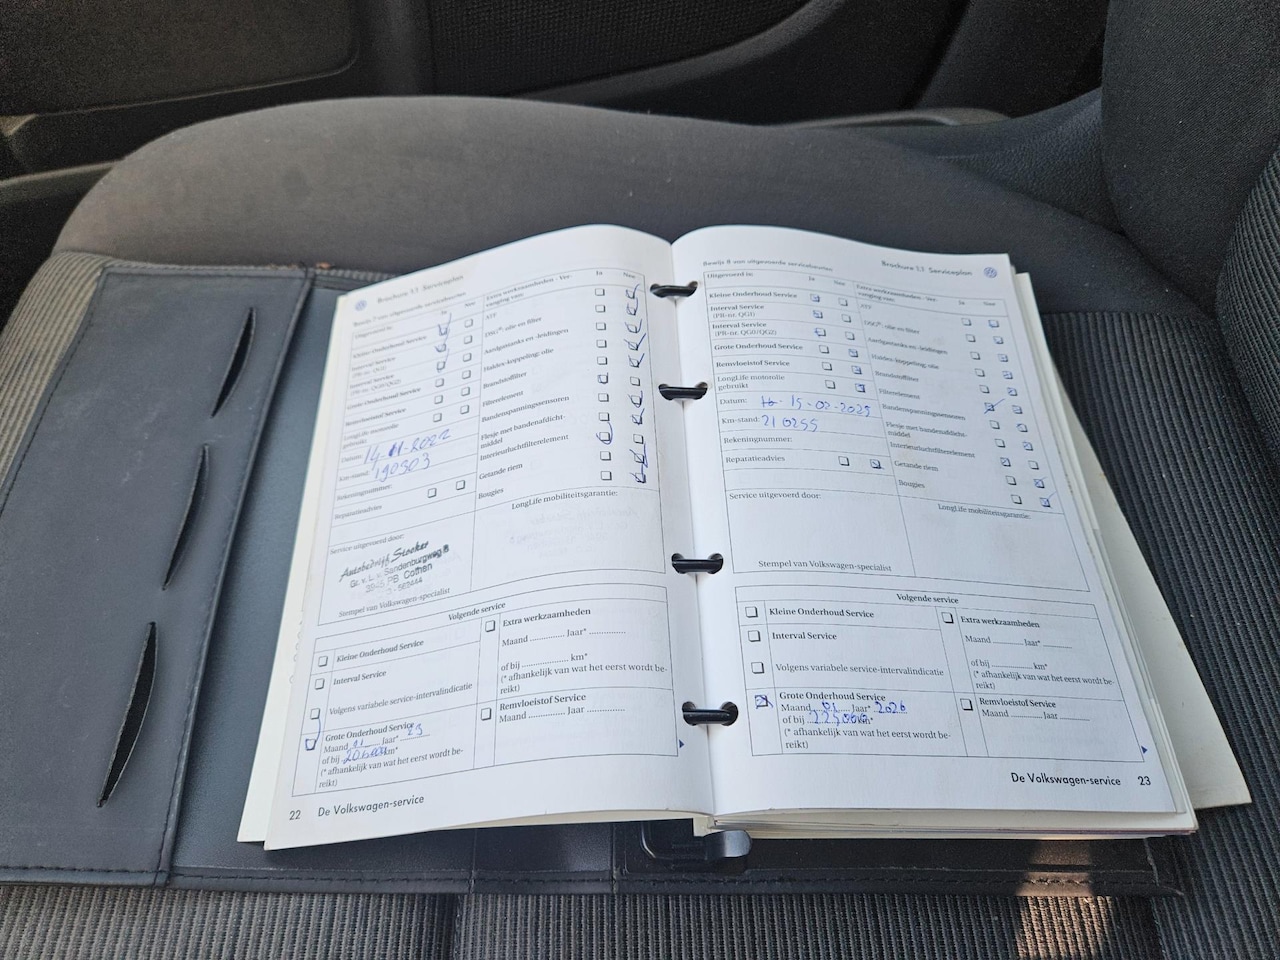 Brochure 1.1 Serviceplan
Bewijs 7 van uitgevoerde servicebeurten
Uitgevoerd is:
Ja
Nee
Kleine Onderhoud Service
Interval Service
(PR-nr. QG1)
Interval Service
(PR-nr. QG0/QG2)
Grote Onderhoud Service
Remvloeistof Service
LongLife motorolie
gebruikt
Datum: 14-11-2022
Km-stand: 190303
Rekeningnummer:
Reparatieadvies
Extra werkzaamheden - Ver-
vanging van:
Ja
Nee
ATF
DSG®: olie en filter
Aardgastanks en -leidingen
Haldex-koppeling: olie
Brandstoffilter
Filterelement
Bandenspanningssensoren
Flesje met bandenafdicht-
middel
Interieurluchtfilterelement
Getande riem
Bougies
Service uitgevoerd door:
Autobedrijf Stooker
Gr. v. L. v. Sandenburgweg 8
PB Cothen
Stempel van Volkswagen-specialist
LongLife mobiliteitsgarantie:
Volgende service
Kleine Onderhoud Service
Interval Service
Volgens variabele service-intervalindicatie
Grote Onderhoud Service
Maand 11 Jaar* 23
of bij km*
(* afhankelijk van wat het eerst wordt be-
reikt)
Extra werkzaamheden
Maand ............ Jaar* ............
of bij ............... km*
(* afhankelijk van wat het eerst wordt be-
reikt)
Remvloeistof Service
Maand ............ Jaar ............
22 De Volkswagen-service
Bewijs 8 van uitgevoerde servicebeurten
Brochure 1.1 Serviceplan
Uitgevoerd is:
Ja
Nee
Kleine Onderhoud Service
Interval Service
(PR-nr. QG1)
Interval Service
(PR-nr. QG0/QG2)
Grote Onderhoud Service
Remvloeistof Service
LongLife motorolie
gebruikt
Datum: 15-02-2025
Km-stand: 210255
Rekeningnummer:
Reparatieadvies
Extra werkzaamheden - Ver-
vanging van:
Ja
Nee
ATF
DSG®: olie en filter
Aardgastanks en -leidingen
Haldex-koppeling: olie
Brandstoffilter
Filterelement
Bandenspanningssensoren
Flesje met bandenafdicht-
middel
Interieurluchtfilterelement
Getande riem
Bougies
Service uitgevoerd door:
Stempel van Volkswagen-specialist
LongLife mobiliteitsgarantie:
Volgende service
Kleine Onderhoud Service
Interval Service
Volgens variabele service-intervalindicatie
Grote Onderhoud Service
Maand Jaar* 2026
of bij 225000 km*
(* afhankelijk van wat het eerst wordt be-
reikt)
Extra werkzaamheden
Maand ............ Jaar* ............
of bij ............... km*
(* afhankelijk van wat het eerst wordt be-
reikt)
Remvloeistof Service
Maand ............ Jaar ............
De Volkswagen-service 23